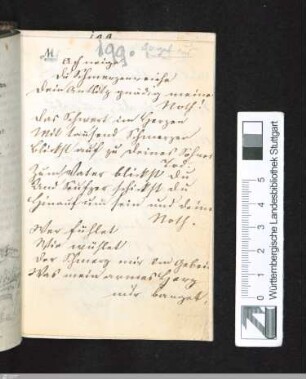 199.
Ach neige
Du Schmerzenreiche
Dein Antlitz gnädig meiner
Noth!
Das Schwert im Herzen
Mit tausend Schmerzen
blickst auf zu deines Sohnes
Tod.
Zum Vater blickst Du
Und Seufzer schickst du
Hinauf um sein und deine
Noth.
Wer fühlet
Wie wühlet
Der Schmerz mir im Gebein
Was mein armes Herz
mir banget
Württembergische Landesbibliothek Stuttgart
0 1 2 3 4 5